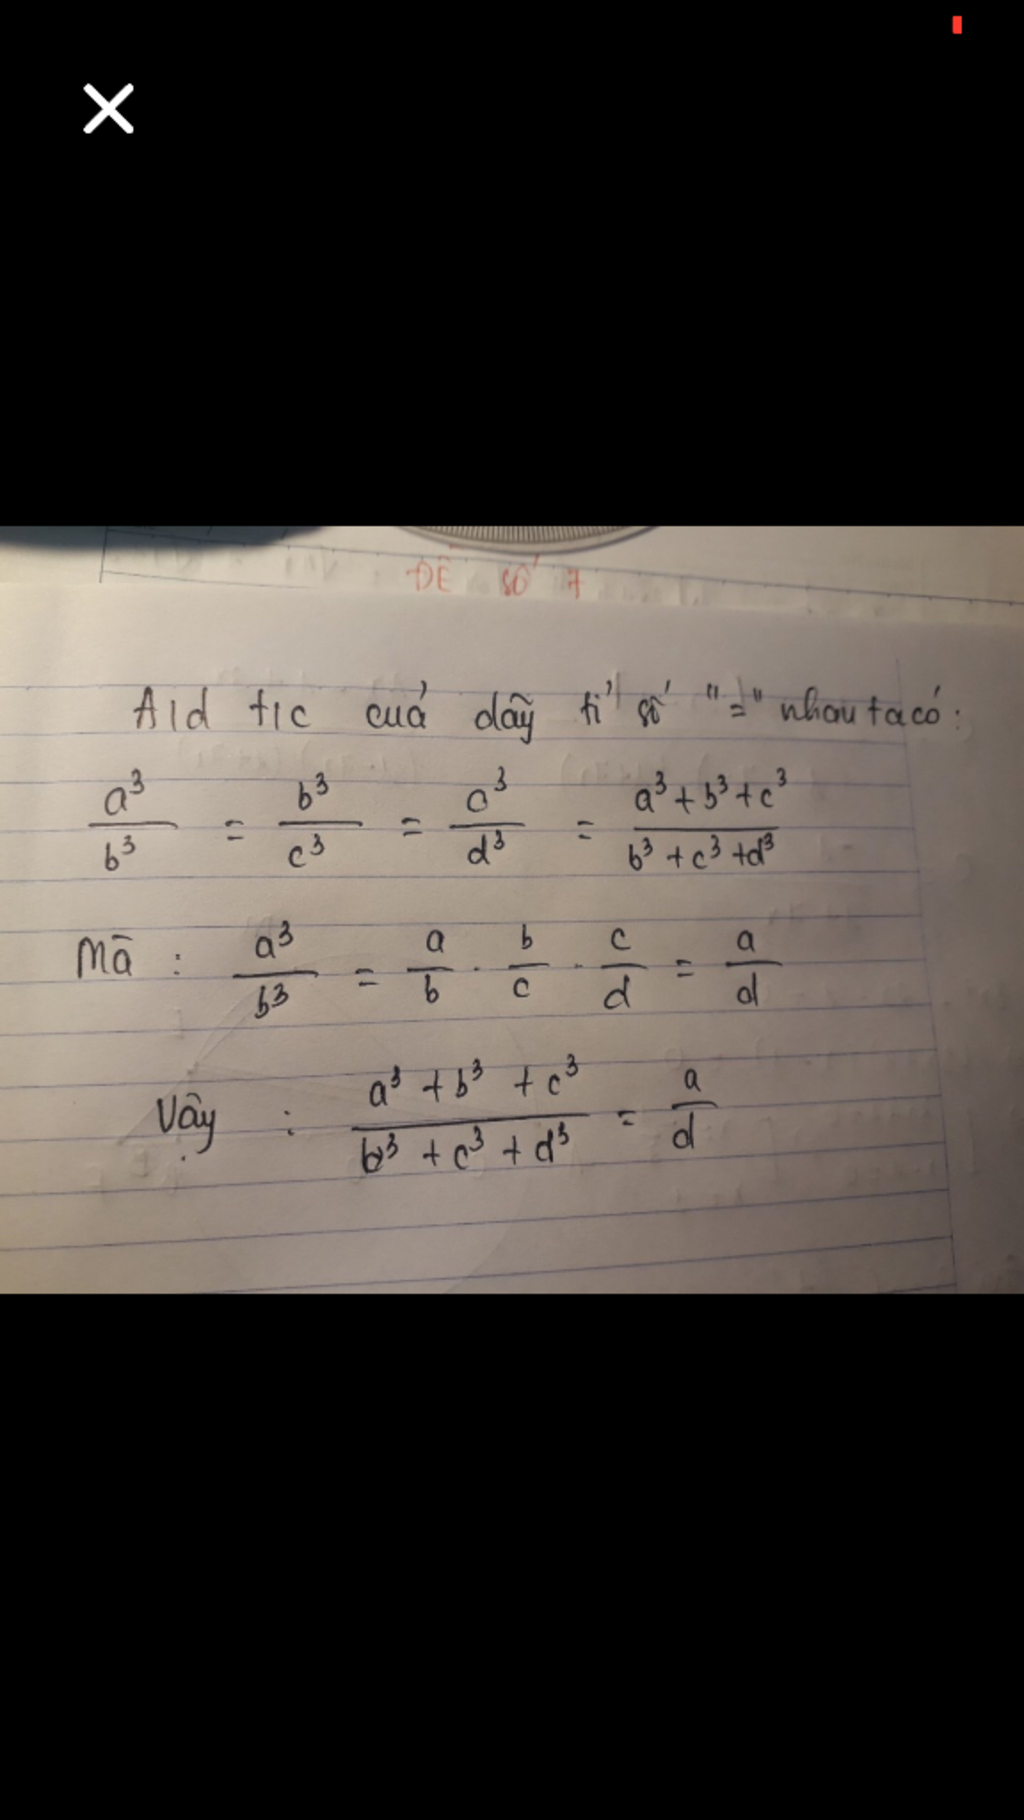 ĐỀ SỐ 7
Ald t/c cuả dãy tỉ số "=" nhau ta có:
a³/b³ = b³/c³ = c³/d³ = a³+b³+c³/b³+c³+d³
Mà : a³/b³ = a/b . b/c . c/d = a/d
Vậy : a³+b³+c³/b³+c³+d³ = a/d